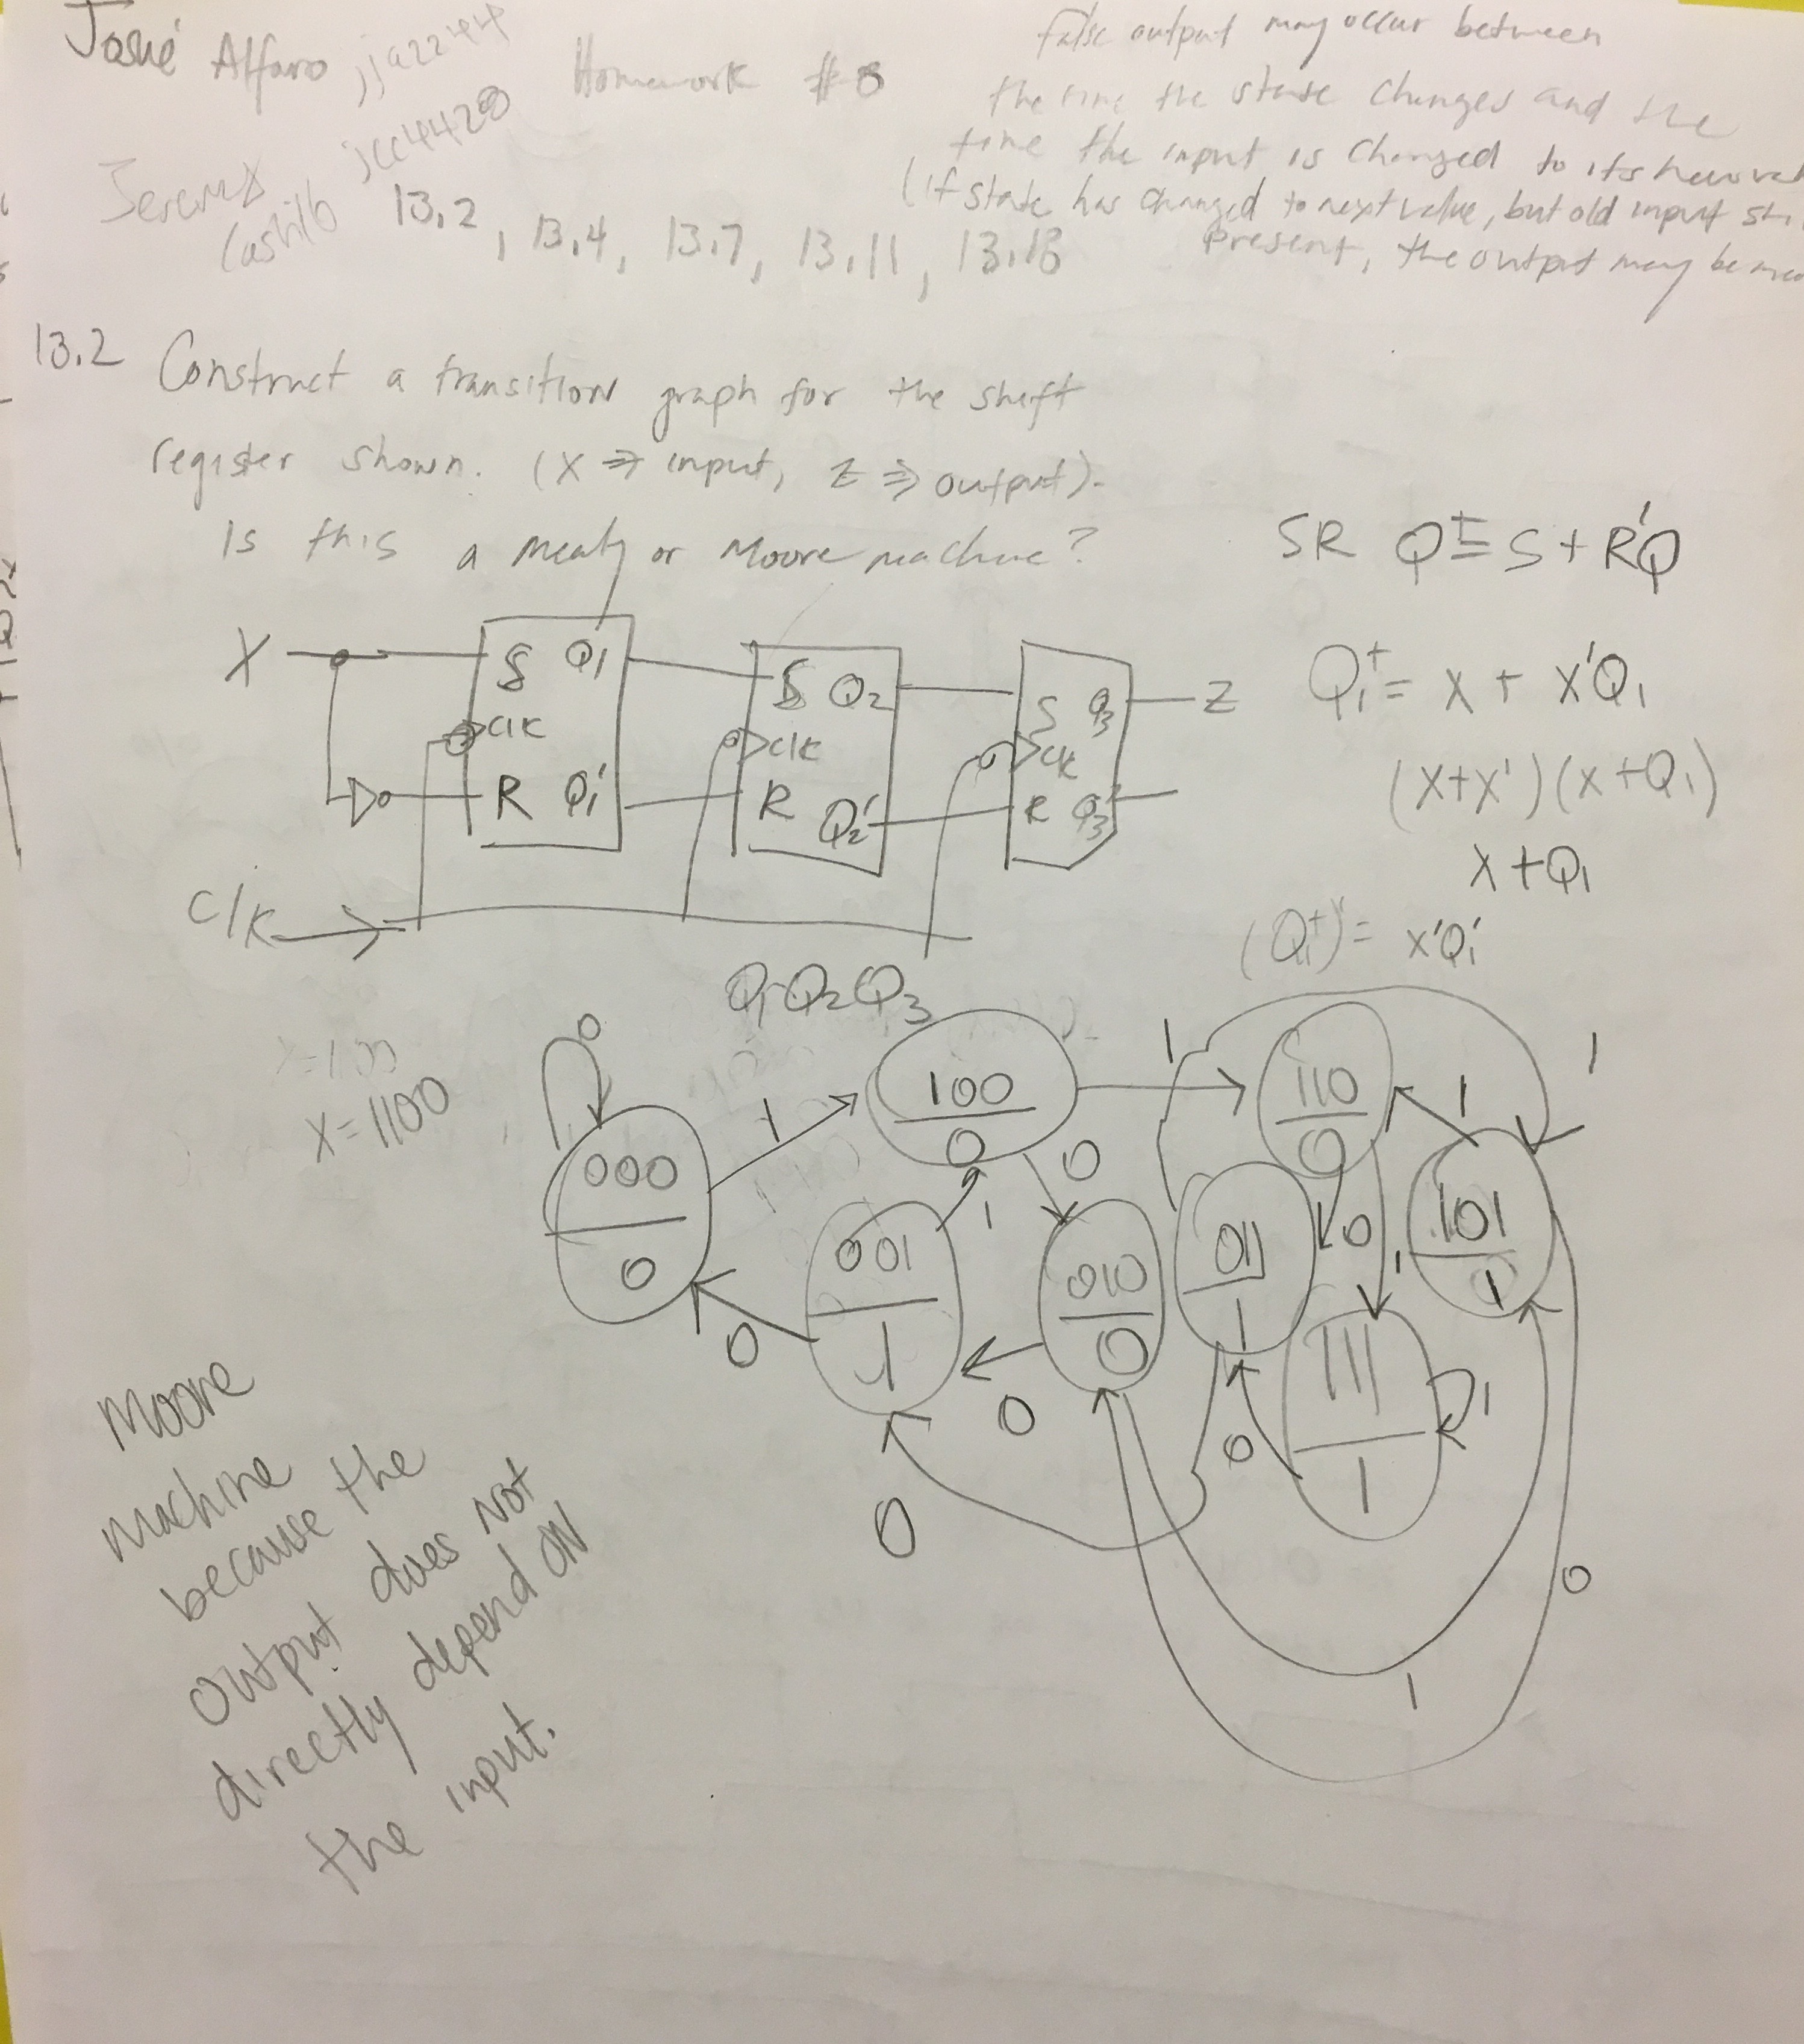 Josué Alfaro jja2244 Homework #8
Jeremy jcc4428
13.2, 13.4, 13.7, 13.11, 13.18
false output may occur between
the time the state changes and the
time the input is changed to its new
(if state has changed to next value, but old input
present, the output may be
13.2 Construct a transition graph for the shift
register shown. (X ⇒ input, Z ⇒ output).
Is this a mealy or Moore machine?
SR Q⁺ = S + R'Q
X
S Q₁
clk
R Q₁'
S Q₂
clk
R Q₂'
S Q₃
clk
R Q₃'
Z
Clk
Q₁⁺ = X + X'Q₁
(X+X')(X+Q₁)
X+Q₁
(Q₁⁺)' = X'Q₁'
Q₁Q₂Q₃
X=100
X=1100
0
000
0
1
100
0
1
110
0
1
1
0
001
1
1
010
0
011
1
1
0
101
1
0
0
111
1
1
0
0
0
1
Moore
machine
because the
output does not
directly depend on
the input.